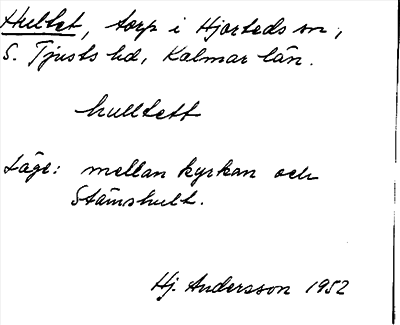 Hultet, torp i Hjorteds sn,
S. Tjusts hd, Kalmar län.
hulltett
Läge: mellan kyrkan och
Stämshult.
Hj. Andersson 1952